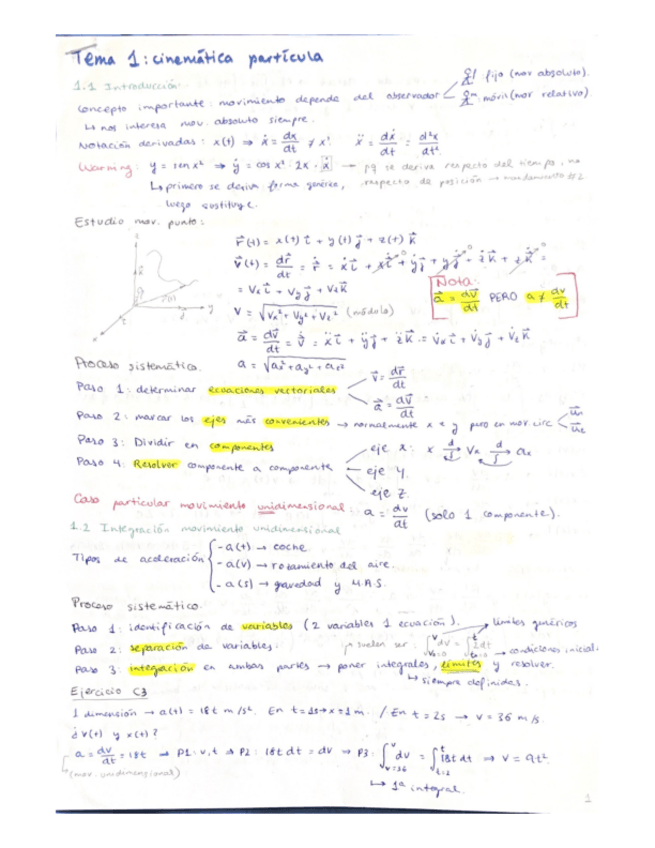 Tema 1: cinemática partícula
1.1 Introducción.
Concepto importante: movimiento depende del observador fijo (mov absoluto).
móvil (mov relativo)
↳ nos interesa mov. absoluto siempre.
Notación derivadas: x(t) ⇒ ẋ = dx/dt ≠ x' ẍ = dẋ/dt = d²x/dt².
Warning: y = sen x² ⇒ ẏ = cos x² · 2x · ẋ → pq se deriva respecto del tiempo, no
↳ primero se deriva forma genérica, respecto de posición →
luego sustituye.
Estudio mov. punto:
r⃗(t) = x(t) i⃗ + y(t) j⃗ + z(t) k⃗
v⃗(t) = dr⃗/dt = ṙ⃗ = ẋi⃗ + xi⃗̇ + ẏj⃗ + yj⃗̇ + żk⃗ + zk⃗̇ =
= Vx i⃗ + Vy j⃗ + Vz k⃗
V = √(Vx² + Vy² + Vz²) (módulo)
Nota:
a⃗ = dv⃗/dt PERO a ≠ dv/dt
a⃗ = dv⃗/dt = v⃗̇ = ẍi⃗ + ÿj⃗ + z̈k⃗ = V̇x i⃗ + V̇y j⃗ + V̇z k⃗
a = √(ax² + ay² + az²)
Proceso sistemático.
Paso 1: determinar ecuaciones vectoriales v⃗ = dr⃗/dt
a⃗ = dv⃗/dt
Paso 2: marcar los ejes más convenientes → normalmente x e y pero en mov. circ
Paso 3: Dividir en componentes
Paso 4: Resolver componente a componente
eje x: x d/dt Vx d/dt ax
eje y.
eje z.
Caso particular movimiento unidimensional: a = dv/dt (solo 1 componente).
1.2 Integración movimiento unidimensional
Tipos de aceleración
- a(t) → coche
- a(v) → rozamiento del aire
- a(s) → gravedad y M.A.S.
Proceso sistemático.
Paso 1: identificación de variables (2 variables 1 ecuación). límites genéricos
Paso 2: separación de variables. suelen ser: → condiciones inicial
Paso 3: integración en ambas partes → poner integrales, límites y resolver.
↳ siempre definidas.
Ejercicio C3
1 dimensión → a(t) = 18t m/s². En t=1s → x=1m. / En t=2s → v=36 m/s.
¿v(t) y x(t)?
a = dv/dt = 18t ⇒ P1: v,t ⇒ P2: 18t dt = dv ⇒ P3: ∫_{v=36}^{v} dv = ∫_{t=2}^{t} 18t dt ⇒ V = 9t².
(mov. unidimensional)
↳ 1ª integral.
1